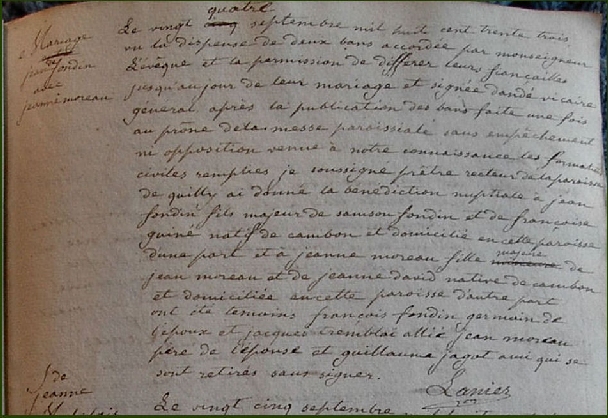 Mariage
jean fondin
avec
jeanne moreau
quatre
Le vingt cinq septembre mil huit cent trente trois
vu la dispense de deux bans accordée par monseigneur
L'évêque et la permission de différer leurs fiançailles
jusqu'au jour de leur mariage et signée dandé vicaire
général après la publication des bans faite une fois
au prône de la messe paroissiale sans empêchement
ni opposition venue à notre connaissance les formalités
civiles remplies je soussigné prêtre recteur de la paroisse
de quilly ai donné la bénédiction nuptiale à jean
fondin fils majeur de samson fondin et de françoise
guiné natif de cambon et domicilié en cette paroisse
d'une part et à jeanne moreau fille majeure de
jean moreau et de jeanne david native de cambon
et domiciliée en cette paroisse d'autre part
ont été temoins françois fondin germain de
l'epoux et jacques tremblai allié jean moreau
père de l'épouse et guillaume jagot ami qui se
sont retirés sans signer.
Lanier
S de
jeanne
Le vingt cinq septembre